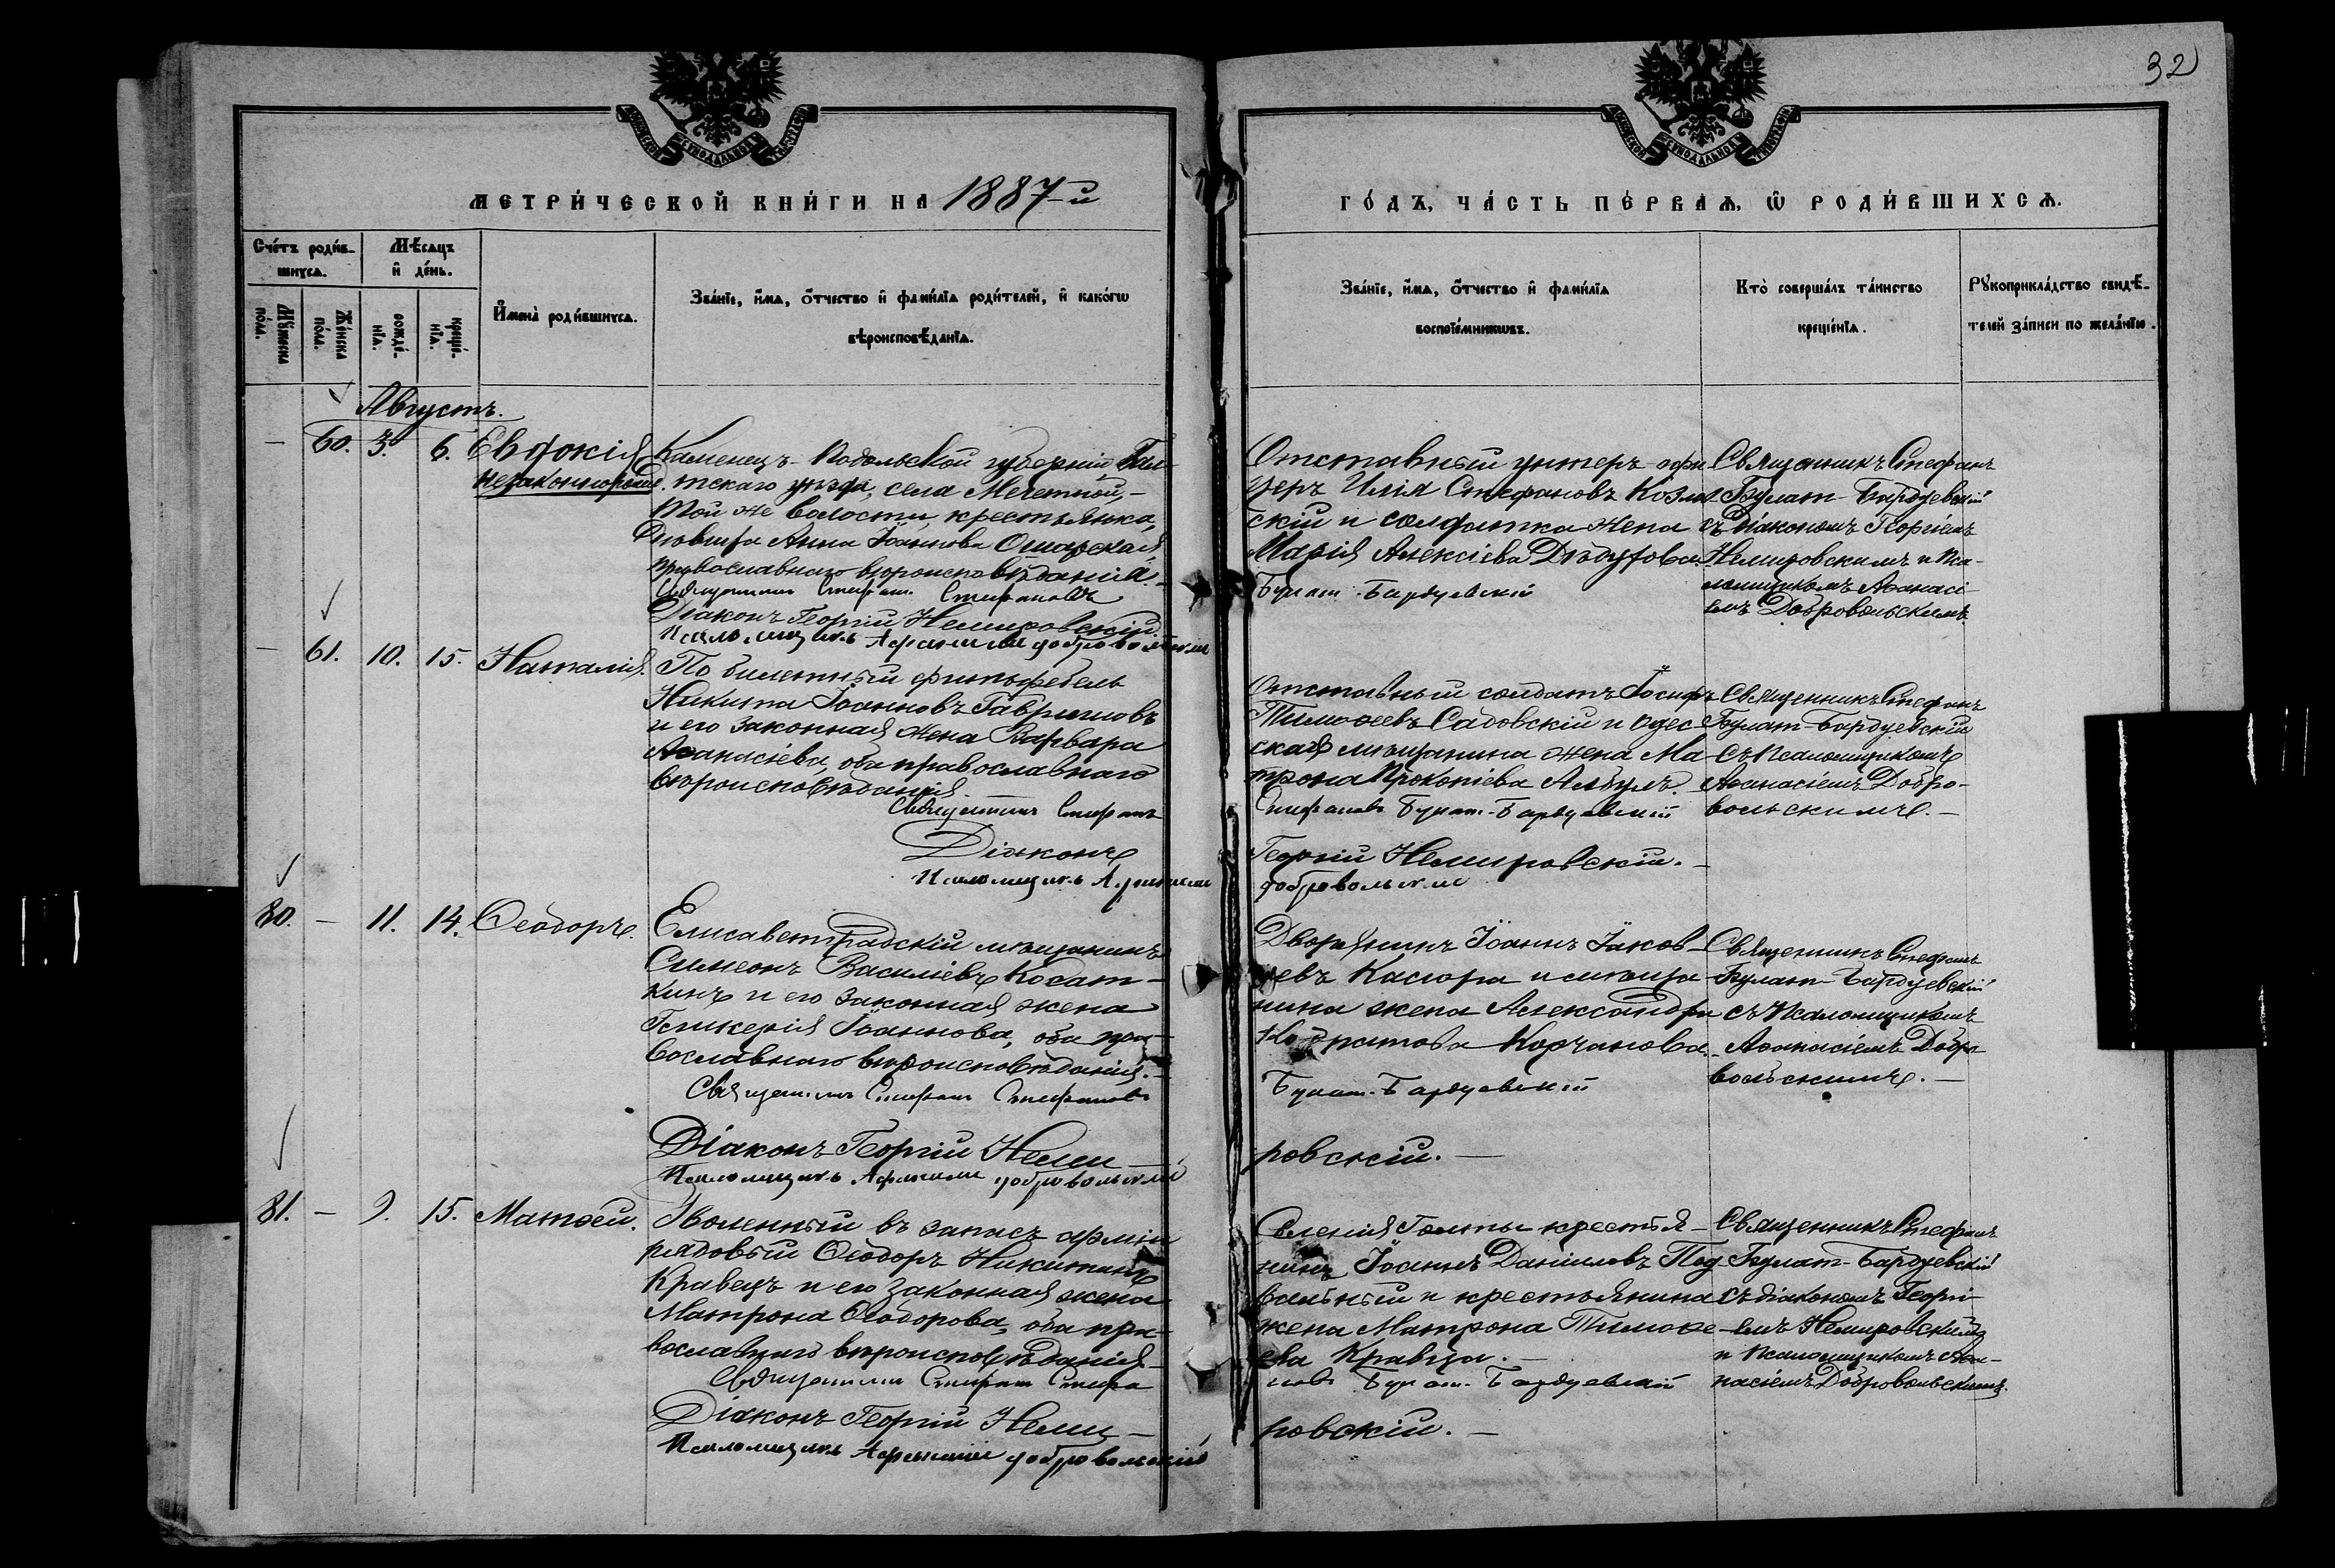 32
МЕТРИ́ЧЕСКОЙ КНИ́ГИ НА 1887-й
ГО́ДЪ, ЧА́СТЬ ПЕ́РВАѦ, Ѡ РОДИ́ВШИХСѦ.
Сче́тъ роди́в-
шихсѧ.
Мꙋ́жеска
по́ла.
Же́нска
по́ла.
Мѣ́сѧцъ
и҆ де́нь.
рожде́-
нїѧ.
креще́-
нїѧ.
И҆мена̀ роди́вшихсѧ.
Зва́нїе, и҆́мѧ, ѻ҆́тчество и҆ фами́лїѧ роди́телей, и҆ како́гѡ
вѣроисповѣ́данїѧ.
Зва́нїе, и҆́мѧ, ѻ҆́тчество и҆ фами́лїѧ
воспрїе́мникѡвъ.
Кто̀ соверша́лъ та́инство
креще́нїѧ.
Рꙋкоприкла́дство свидѣ́-
телей за́писи по жела́нїю.
Августъ.
— 60. 3. 6. Евдокія
незаконнорожд.
Каменецъ-Подольской губерніи, Бал-
тскаго уѣзда, села Мечетной,-
той же волости, крестьянка,
дѣвица Анна Іоаннова Омарская,
православнаго вѣроисповѣданія.-
Священникъ Стефан. Стефановъ
Діаконъ Георгій Немировскій.
Псаломщикъ Афанасий Добровольский
Отставный унтеръ-офи
церъ Илія Стефановъ Козлов
скій и солдатка жена
Марія Алексіева
Булат-Бардуевскій
Священникъ Стефанъ
Булат-Бардуевскій
съ діакономъ Георгіемъ
Немировскимъ и Пса-
ломщикомъ Аѳанасі-
емъ Добровольскимъ
— 61. 10. 15. Наталія.
По билетный фельдфебель
Никита Іоанновъ Гавриловъ
и его законная жена Варвара
Аѳанасіева, оба православнаго
вѣроисповѣданія.
Священникъ Стефанъ
Діаконъ
Псаломщикъ Афанасий
Отставный солдатъ Іосифъ
Тимоѳеевъ Садовскій и одес
ская мѣщанина жена Ма-
трона Прокопіева Албулъ.
Стефановъ Булат-Бардуевскій
Георгій Немировскій.-
Добровольский
Священникъ Стефанъ
Булат-Бардуевскій
съ Псаломщикомъ
Аѳанасіемъ Добро-
вольскимъ.-
80. — 11. 14. Ѳеодоръ.
Елисаветградскій мѣщанинъ
Симеонъ Василіевъ Косат-
кинъ и его законная жена
Гликерія Іоаннова, оба пра-
вославнаго вѣроисповѣданія.-
Священникъ Стефан Стефановъ
Діаконъ Георгій Неми-
Псаломщикъ Афанасий Добровольский
Дворянинъ Іоаннъ Іаков-
левъ Касюра и мѣща-
нина жена Александра
Корчанова
Булат-Бардуевскій
ровскій.-
Священникъ Стефанъ
Булат-Бардуевскій
съ Псаломщикомъ
Аѳанасіемъ Добро
вольскимъ.-
81. — 9. 15. Матѳей.
Уволенный въ запасъ арміи
рядовый Ѳеодоръ Никитинъ
Кравецъ и его законная жена
Матрона Ѳеодорова, оба пра-
вославнаго вѣроисповѣданія.
Священникъ Стефан Стефа
Діаконъ Георгій Неми-
Псаломщикъ Афанасий Добровольскій
Селенія Голты крестья-
нинъ Іоаннъ Даніиловъ Под
вальный и крестьянина
жена Матрона Тимоѳе-
ева Кравца.-
новъ Булат-Бардуевский
ровскій.-
Священникъ Стефанъ
Булат-Бардуевскій
съ діакономъ Георгі-
емъ Немировскимъ
и Псаломщикомъ Аѳа-
насіемъ Добровольскимъ.